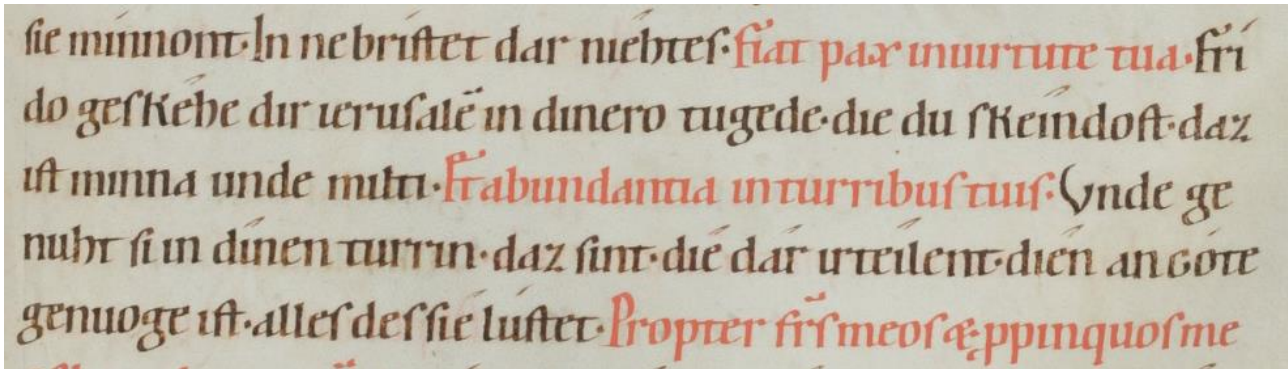 sie minnont·In ne bristet dar niêhtes·fiat pax in uirtute tua·frí
do geskéhe dir ierusalē in dinero tugede·die du skeíndost·daz
ist minna unde milti·Et abundantia in turribus tuis·Vnde ge
nuht si in dînen turrin·daz sint·dîe dâr irteîlent·dîen an góte
genuoge ist·alles des sîe lústet·Propter frs̄ meos æ ꝓpinquos me